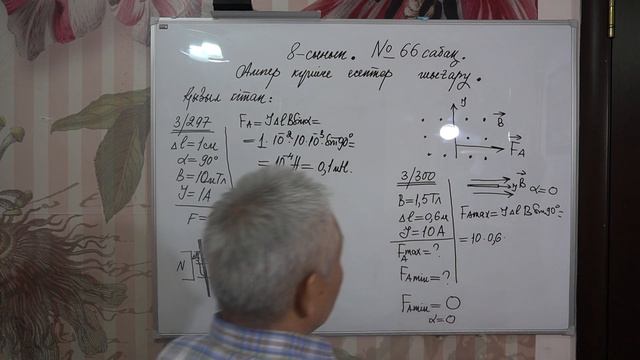 8-сынып. № 66 сабақ.
Ампер күшіне есептер шығару.
Қызыл кітап:
3/297
Δl = 1см
α = 90°
B = 10мТл
I = 1А
F =
N
F_A = IΔlBsinα =
= 1·10⁻²·10·10⁻³ sin90° =
= 10⁻⁴Н = 0,1мН.
I
B
F_A
3/300
B = 1,5Тл
Δl = 0,6м
I = 10А
F_A max = ?
F_A min = ?
F_A min = 0
α = 0
B
I
α = 0
F_A max = IΔlBsin90° =
= 10·0,6·